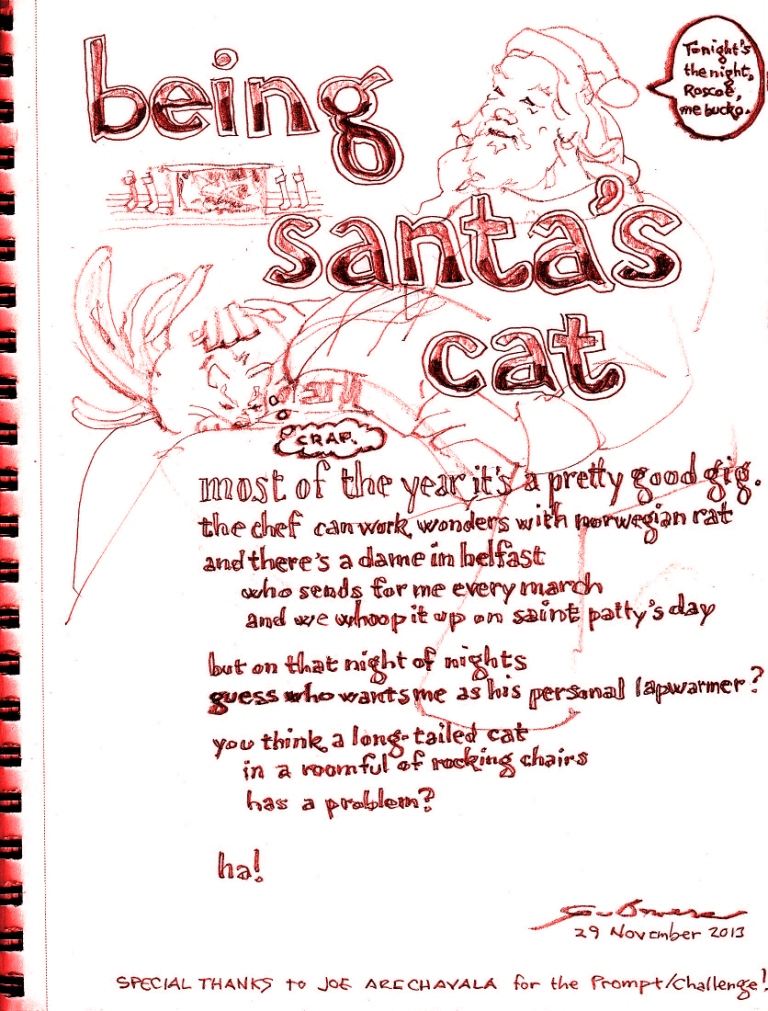 being
santa's
cat
Tonight's
the night,
Roscoe,
me bucko.
CRAP.
most of the year it's a pretty good gig.
the chef can work wonders with norwegian rat
and there's a dame in belfast
who sends for me every march
and we whoop it up on saint patty's day
but on that night of nights
guess who wants me as his personal lapwarmer?
you think a long-tailed cat
in a roomful of rocking chairs
has a problem?
ha!
29 November 2013
SPECIAL THANKS to JOE ARECHAVALA for the Prompt/Challenge!